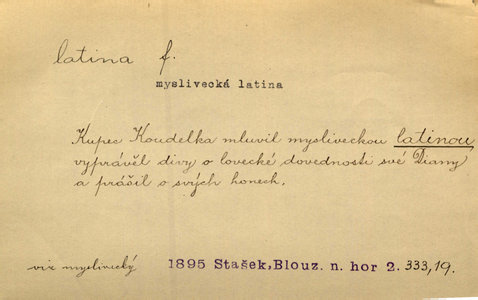 latina f.
myslivecká latina
Kupec Koudelka mluvil mysliveckou latinou
vyprávěl divy o lovecké dovednosti své Diamy
a prášil o svých honech.
viz myslivecký 1895 Stašek, Blouz. n. hor 2. 333,19.